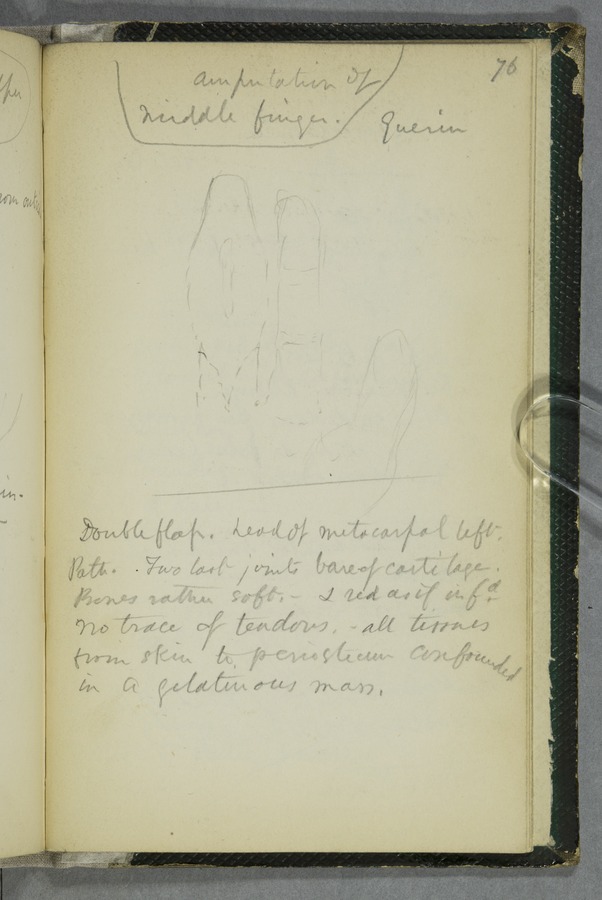 76
amputation of
middle finger.
Guerin
Double flap. head of metacarpal left.
Path. - Two last joints bare of cartilage.
Bones rather soft. - & red as if inf.d
no trace of tendons. - all tissues
from skin to periosteum confounded
in a gelatinous mass.